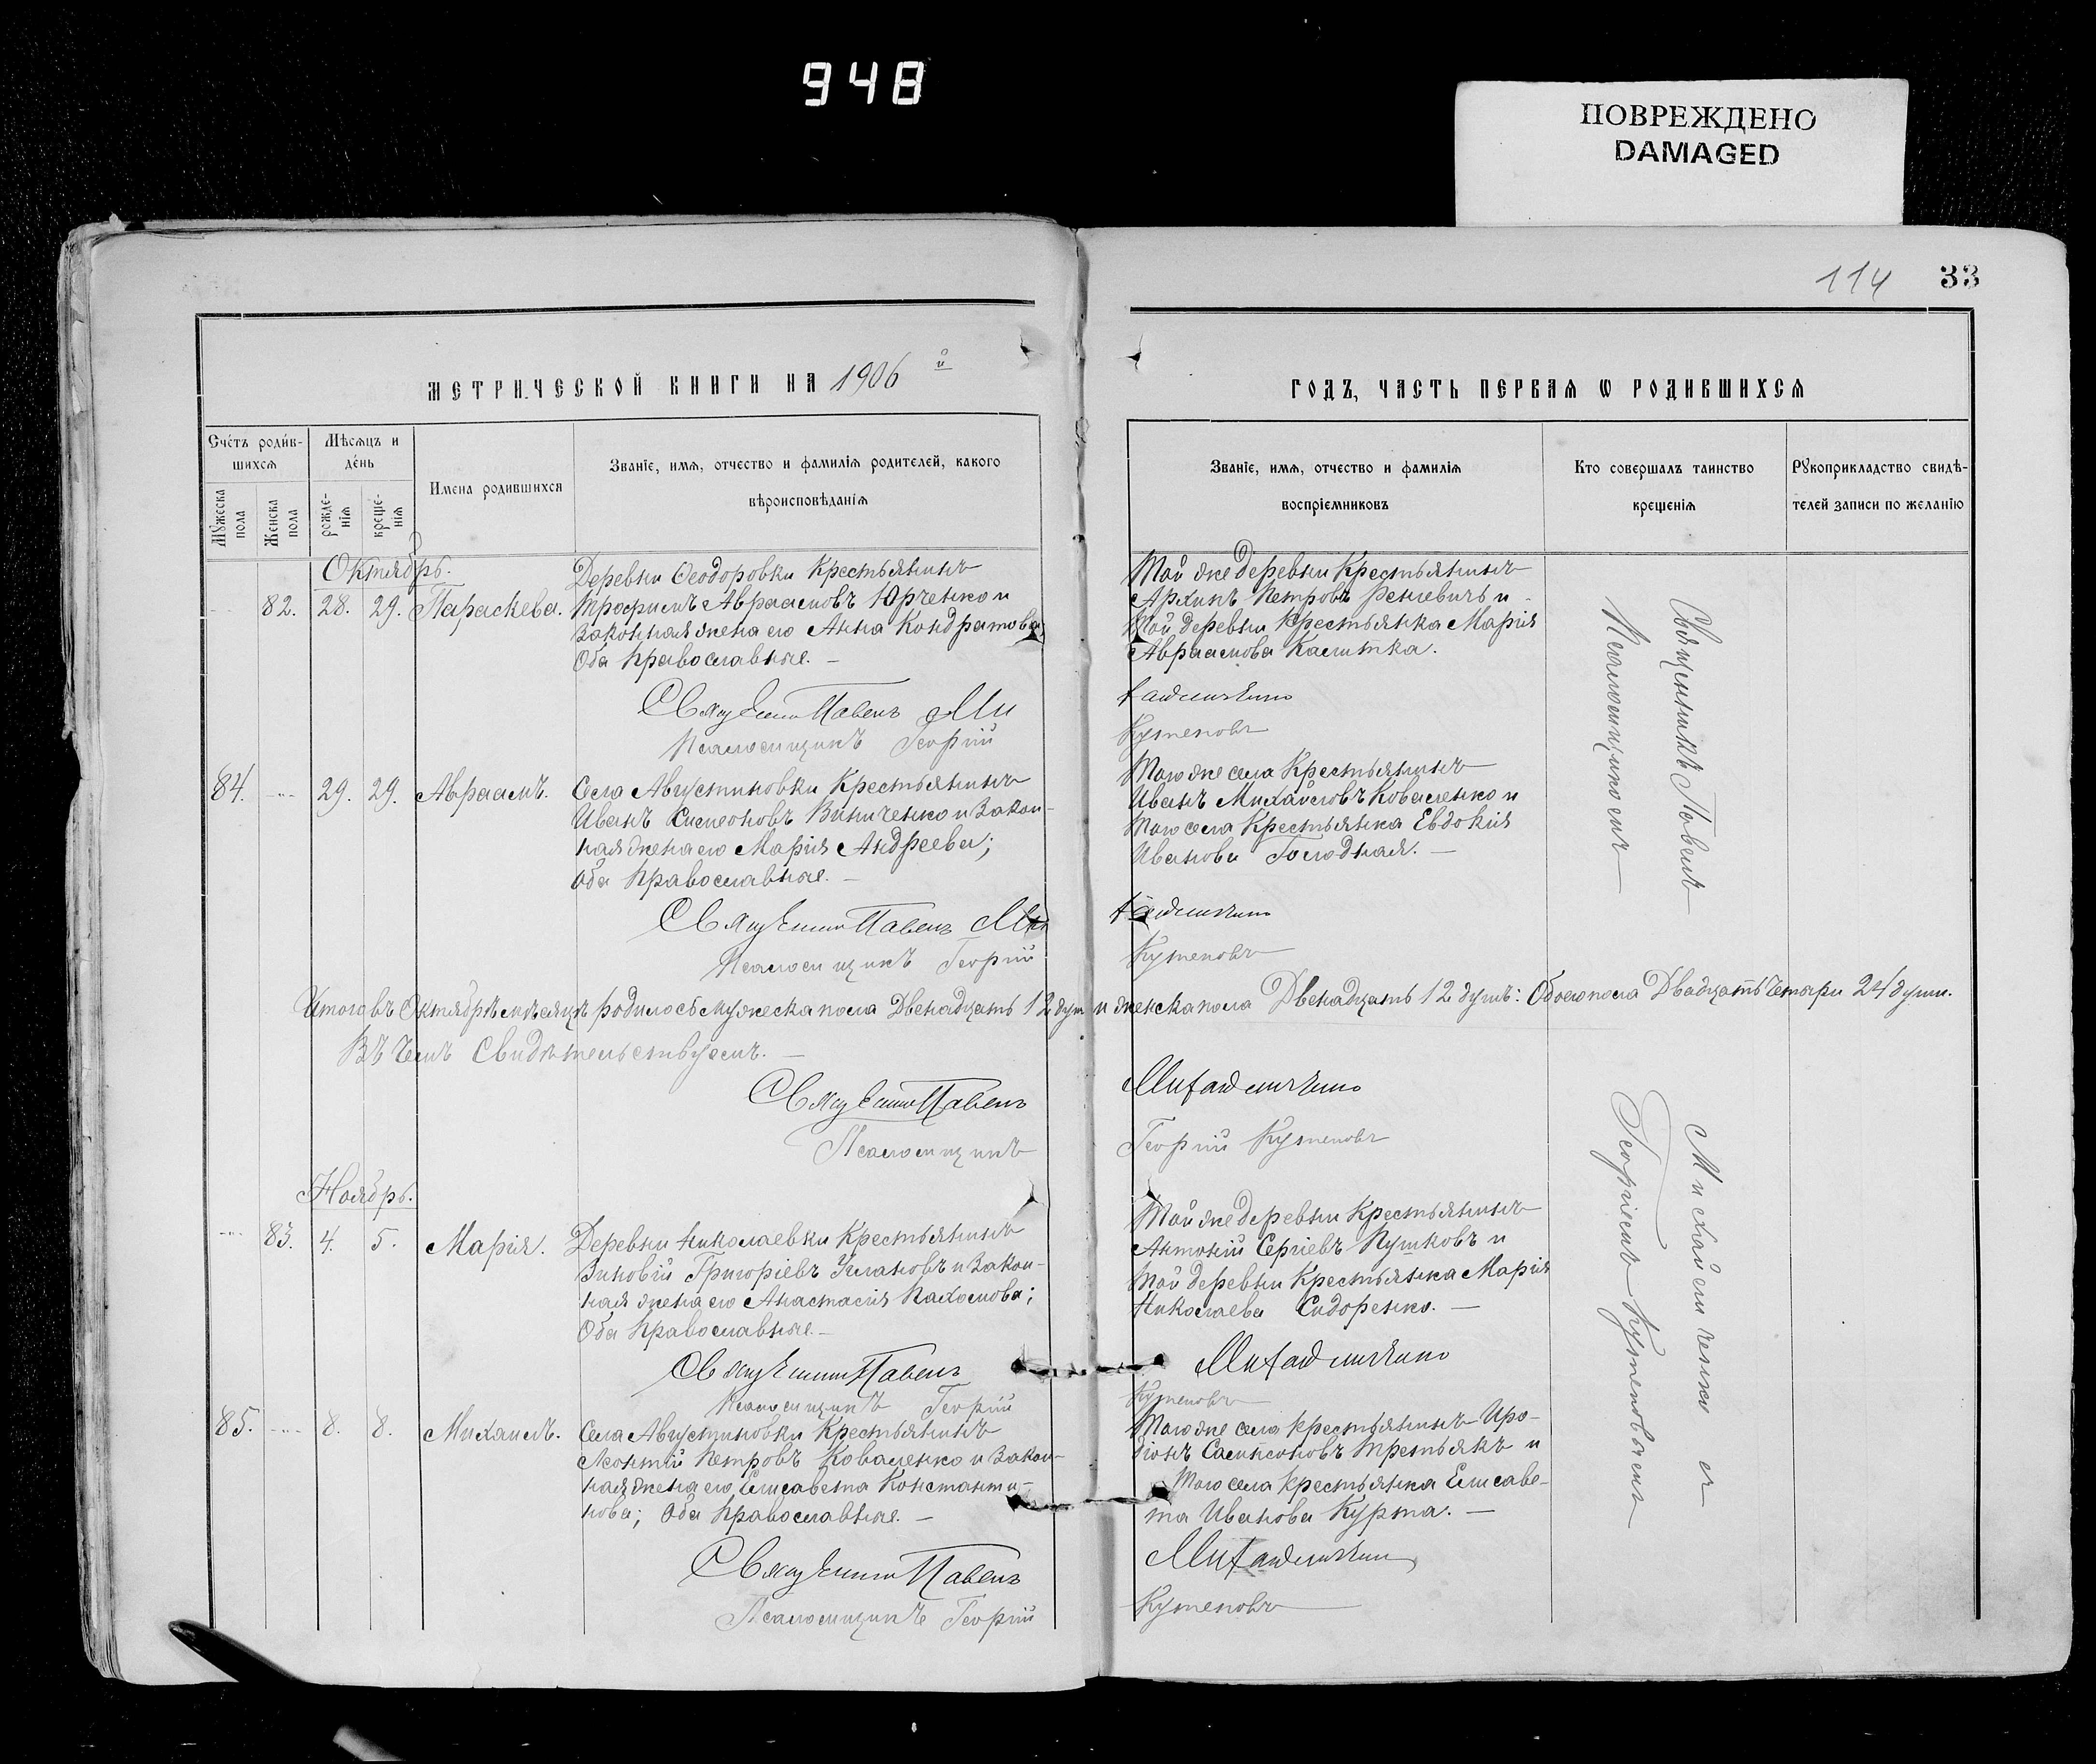 948
ПОВРЕЖДЕНО
DAMAGED
114 33
МЕТРИЧЕСКОЙ КНИГИ НА 1906 й
Счетъ родив-
шихся
Мѣсяцъ и
день
Мужеска пола
Женска пола
рожде-
нія
креще-
нія
Имена родившихся
Званіе, имя, отчество и фамилія родителей, какого
вѣроисповѣданія
Октябрь.
82. 28. 29. Параскева.
Деревни Ѳеодоровки крестьянинъ
Трофимъ Авраамовъ Юрченко и
законная жена его Анна Кондратова,
Оба православные. —
Священникъ Павелъ Ми
Псаломщикъ Георгій
84. 29. 29. Авраамъ.
Села Августиновки крестьянинъ
Иванъ Симеоновъ Виниченко и закон-
ная жена его Марія Андреева;
Оба православные. —
Священникъ Павелъ Ми
Псаломщикъ Георгій
Итого въ Октябрѣ мѣсяцѣ родилось мужеска пола Двенадцать 12 душ и женска пола Двенадцать 12 душъ: Обоего пола Двадцать четыри 24 души.
Въ чемъ свидѣтельствуемъ. —
Священникъ Павелъ
Псаломщикъ
Ноябрь.
83. 4. 5. Марія.
Деревни Николаевки крестьянинъ
Зиновій Григоріевъ Улановъ и закон-
ная жена его Анастасія Пахомова;
Оба православные. —
Священникъ Павелъ
Псаломщикъ Георгій
85. 8. 8. Михаилъ.
Села Августиновки крестьянинъ
Леонтій Петровъ Коваленко и закон-
ная жена его Елисавета Константи-
нова; Оба православные. —
Священникъ Павелъ
Псаломщикъ Георгій
ГОДЪ, ЧАСТЬ ПЕРВАЯ Ѡ РОДИВШИХСЯ
Званіе, имя, отчество и фамилія
воспріемниковъ
Кто совершалъ таинство
крещенія
Рукоприкладство свидѣ-
телей записи по желанію
Той же деревни крестьянинъ
Архипъ Петровъ и
Той деревни крестьянка Марія
Авраамова Калитка.
хайличенко
Кутеповъ
Того же села крестьянинъ
Иванъ Михайловъ Коваленко и
Того села крестьянка Евдокія
Иванова Голодная. —
хайличенко
Кутеповъ
Михайличенко
Георгій Кутеповъ
Той же деревни крестьянинъ
Антоній Сергіевъ Пушковъ и
Той деревни крестьянка Марія
Николаева Сидоренко. —
Михайличенко
Кутеповъ
Того же села крестьянинъ Иро-
діонъ Сампсоновъ Третьякъ и
Того села крестьянка Елисаве-
та Иванова Курта. —
Михайличенко
Кутеповъ
Священникъ Павелъ
Михайличенко съ
Псаломщикомъ
Георгіемъ Кутеповымъ